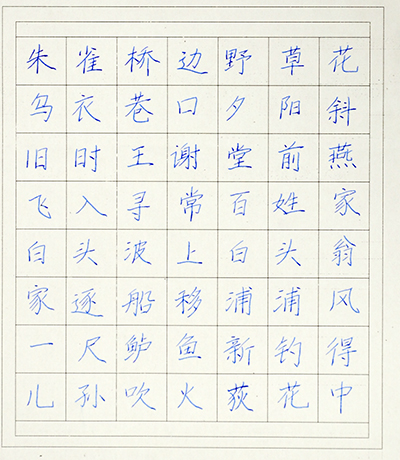 朱雀桥边野草花
乌衣巷口夕阳斜
旧时王谢堂前燕
飞入寻常百姓家
白头波上白头翁
家逐船移浦浦风
一尺鲈鱼新钓得
儿孙吹火荻花中